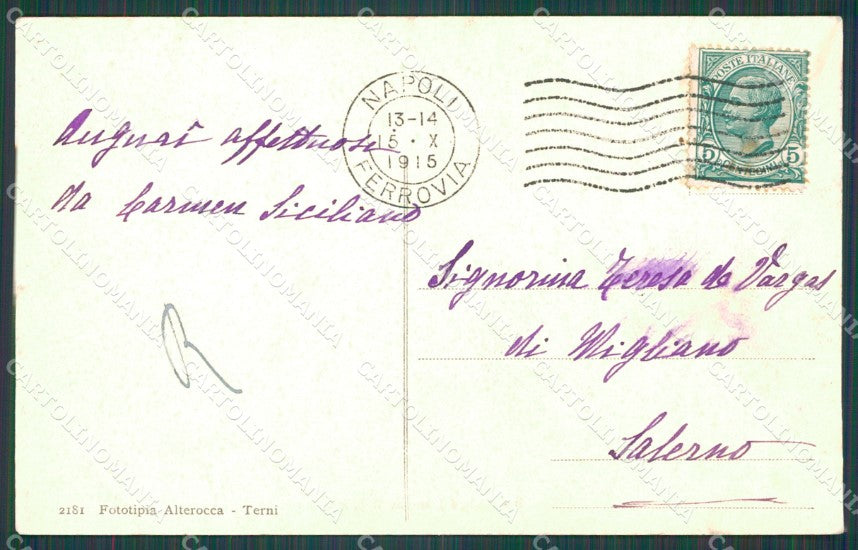 NAPOLI
13-14
15 · X
1915
FERROVIA
POSTE ITALIANE
5 5
Auguri affettuosi
da Carmen Siciliano
Signorina Teresa de Vargas
di Migliano
Salerno
2181 Fototipia Alterocca - Terni
CARTOLINOMANIA